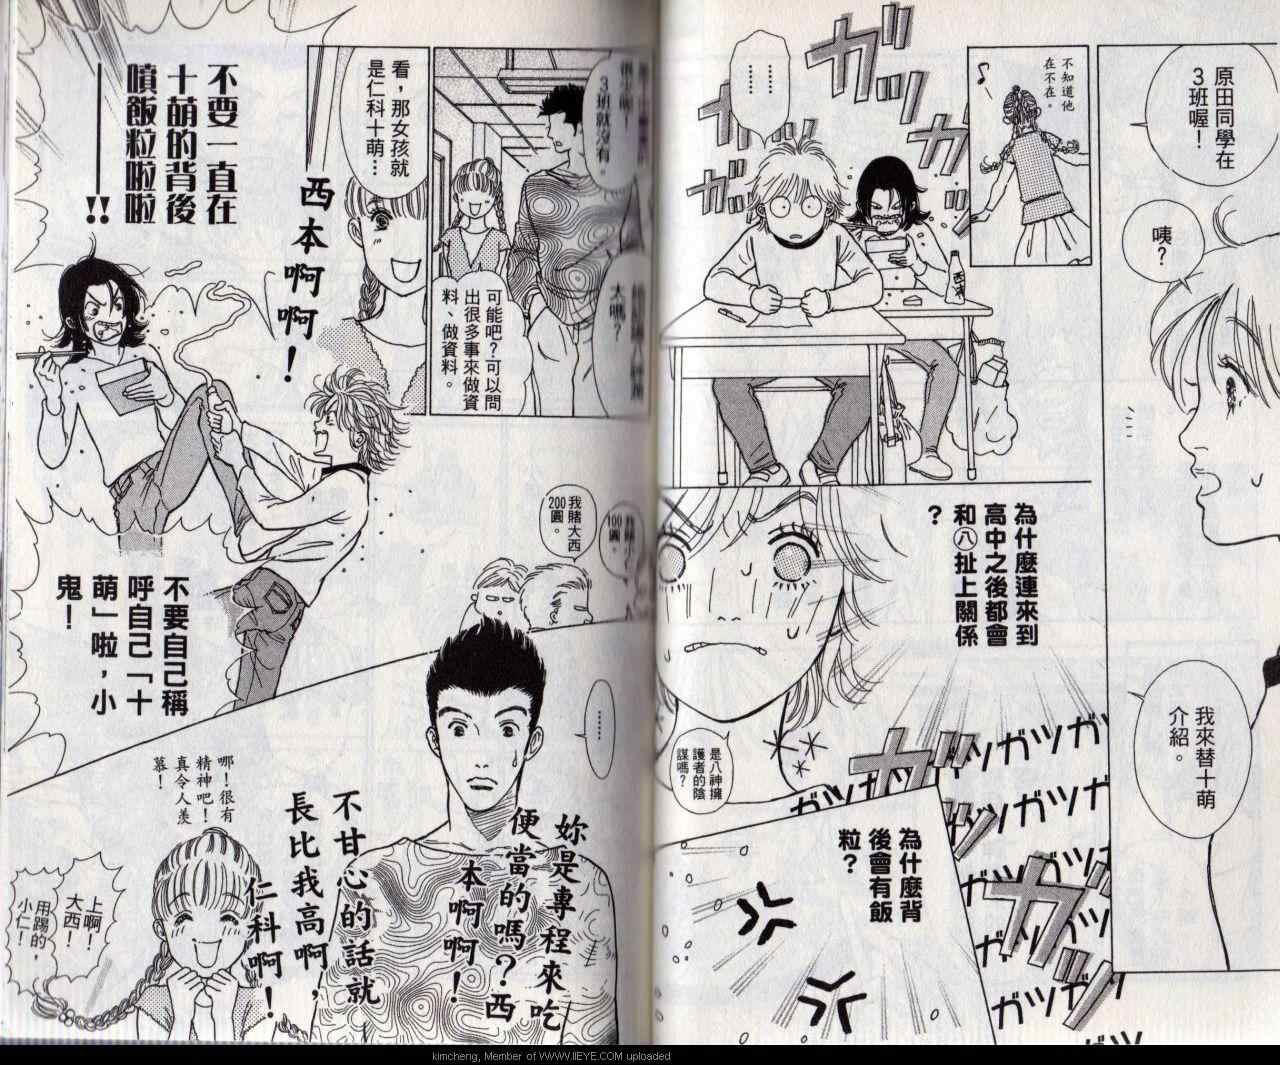 原田同學在
3班喔！
咦？
我來替十萌
介紹。
不知道他
在不在。
♪
……
ガツガツ
ガツガツ
為什麼連來到
高中之後都會
和㊇扯上關係
？
是八神擁
護者的陰
謀嗎？
ガツガツガツ
ガツガツガツ
ガツガツ
為什麼背
後會有飯
粒？
3班就沒有。
大嗎？
可能吧？可以問
出很多事來做資
料、做資料。
看，那女孩就
是仁科十萌…
西本啊啊！
不要一直在
十萌的背後
噴飯粒啦啦
──!!
不要自己稱
呼自己「十
萌」啦，小
鬼！
100圓。
我賭大西
200圓。
……
妳是專程來吃
便當的嗎？西
本啊啊！
不甘心的話就
長比我高啊，
仁科啊！
哪！很有
精神吧！
真令人羨
慕！
上啊！
大西！
用踢的，
小仁！
kimcheng, Member of WWW.IIEYE.COM uploaded